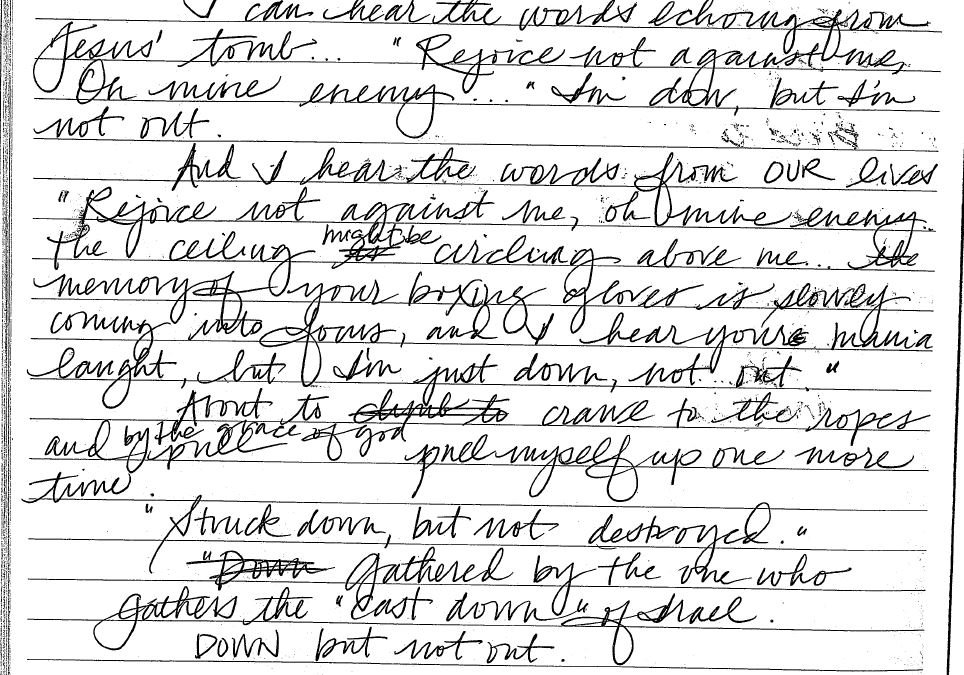 I can hear the words echoing from
Jesus' tomb... "Rejoice not against me,
Oh mine enemy..." I'm down, but I'm
not out.
And I hear the words from OUR lives
"Rejoice not against me, oh mine enemy..
the ceiling might be circling above me... the
memory of your boxing gloves is slowly
coming into focus, and I hear your mania
laught, but I'm just down, not out."
About to climb to crawl to the ropes
and by the grace of god pull myself up one more
time.
"Struck down, but not destroyed."
"Down Gathered by the one who
gathers the "cast down" of Israel.
DOWN but not out.